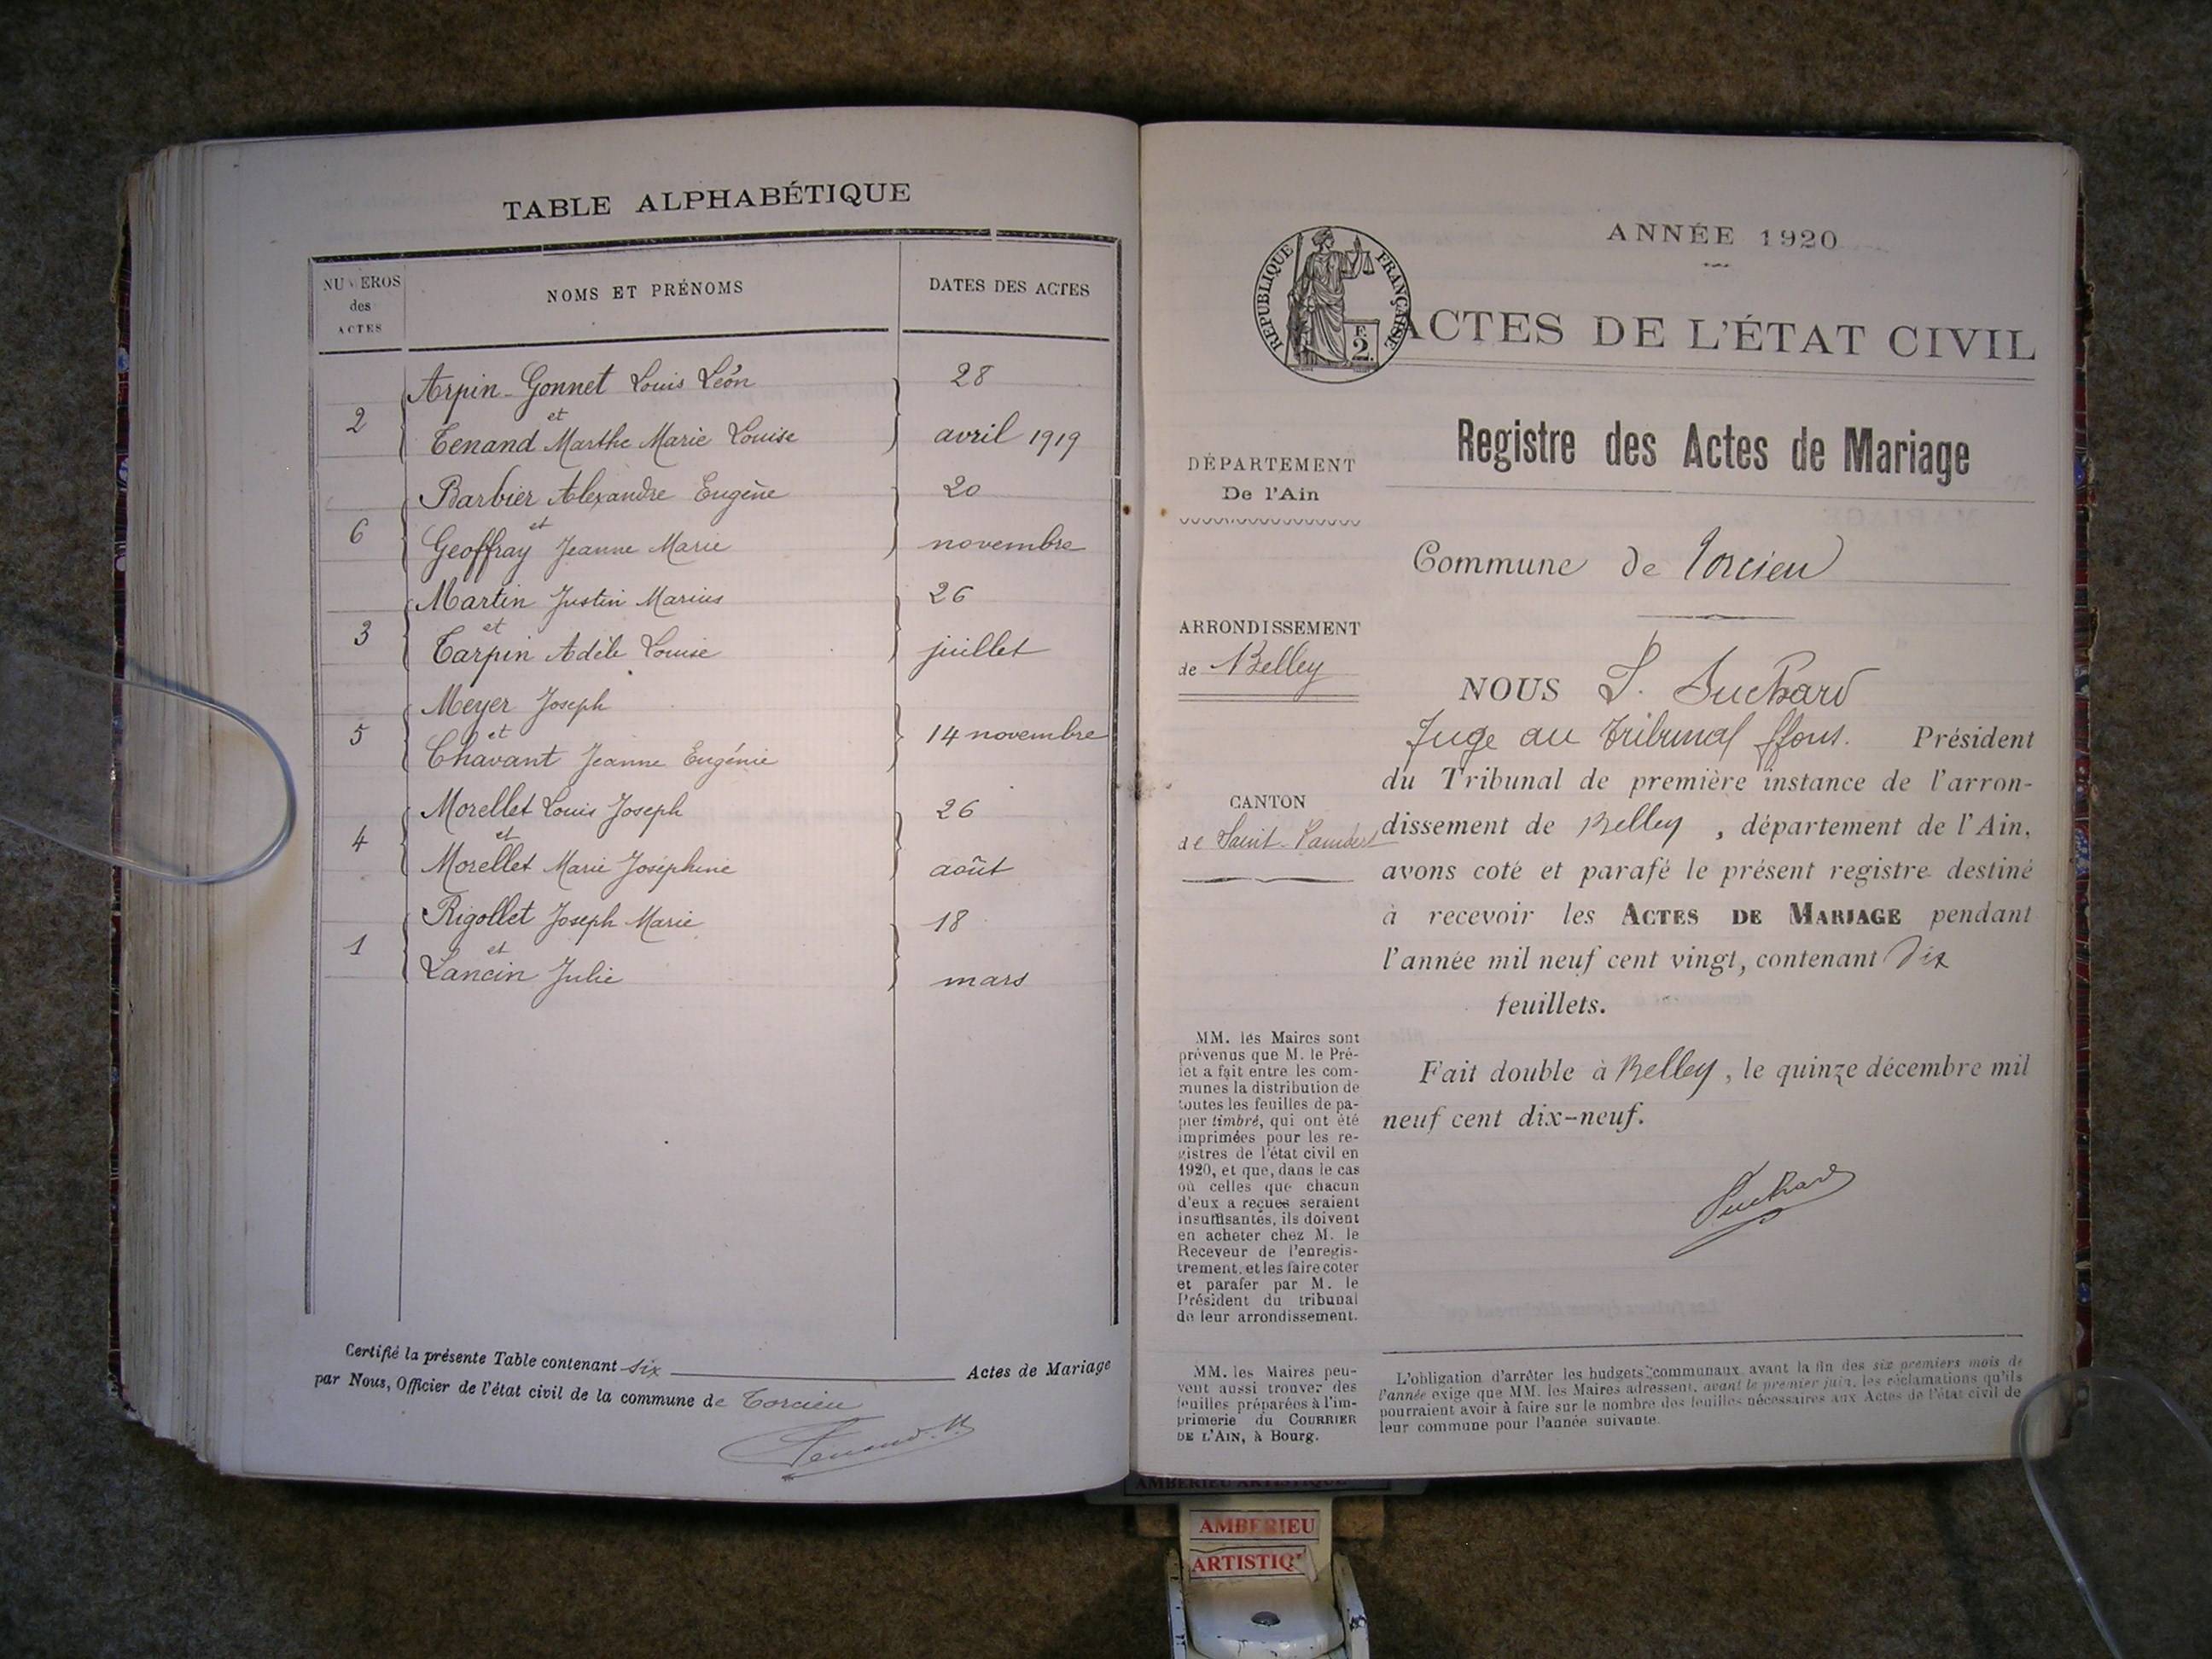 TABLE ALPHABÉTIQUE
NUMÉROS
des
ACTES
NOMS ET PRÉNOMS
DATES DES ACTES
Arpin-Gonnet Louis Léon
28
2
et
Tenand Marthe Marie Louise
avril 1919
Barbier Alexandre Eugène
20
6
et
Geoffray Jeanne Marie
novembre
Martin Justin Marius
26
3
et
Tarpin Adèle Louise
juillet
Meyer Joseph
5
et
14 novembre
Chavant Jeanne Eugénie
Morellet Louis Joseph
26
4
et
Morellet Marie Joséphine
août
Rigollet Joseph Marie
18
1
et
Lancin Julie
mars
Certifié la présente Table contenant six Actes de Mariage
par Nous, Officier de l'état civil de la commune de Torcieu
Tenand. M.
RÉPUBLIQUE FRANÇAISE
F.
2.
ANNÉE 1920
ACTES DE L'ÉTAT CIVIL
Registre des Actes de Mariage
DÉPARTEMENT
De l'Ain
Commune de Torcieu
ARRONDISSEMENT
de Belley
CANTON
de Saint-Rambert
NOUS Suchard
Juge au Tribunal ffons. Président
du Tribunal de première instance de l'arron-
dissement de Belley, département de l'Ain,
avons coté et parafé le présent registre destiné
à recevoir les ACTES DE MARIAGE pendant
l'année mil neuf cent vingt, contenant Dix
feuillets.
Fait double à Belley, le quinze décembre mil
neuf cent dix-neuf.
Suchard
MM. les Maires sont
prévenus que M. le Pré-
fet a fait entre les com-
munes la distribution de
toutes les feuilles de pa-
pier timbré, qui ont été
imprimées pour les re-
gistres de l'état civil en
1920, et que, dans le cas
où celles que chacun
d'eux a reçues seraient
insuffisantes, ils doivent
en acheter chez M. le
Receveur de l'enregis-
trement, et les faire coter
et parafer par M. le
Président du tribunal
de leur arrondissement.
MM. les Maires peu-
vent aussi trouver des
feuilles préparées à l'im-
primerie du COURRIER
DE L'AIN, à Bourg.
L'obligation d'arrêter les budgets communaux avant la fin des six premiers mois de
l'année exige que MM. les Maires adressent, avant le premier juin, les réclamations qu'ils
pourraient avoir à faire sur le nombre des feuilles nécessaires aux Actes de l'état civil de
leur commune pour l'année suivante.
AMBERIEU ARTISTIQUE
AMBERIEU
ARTISTIQ